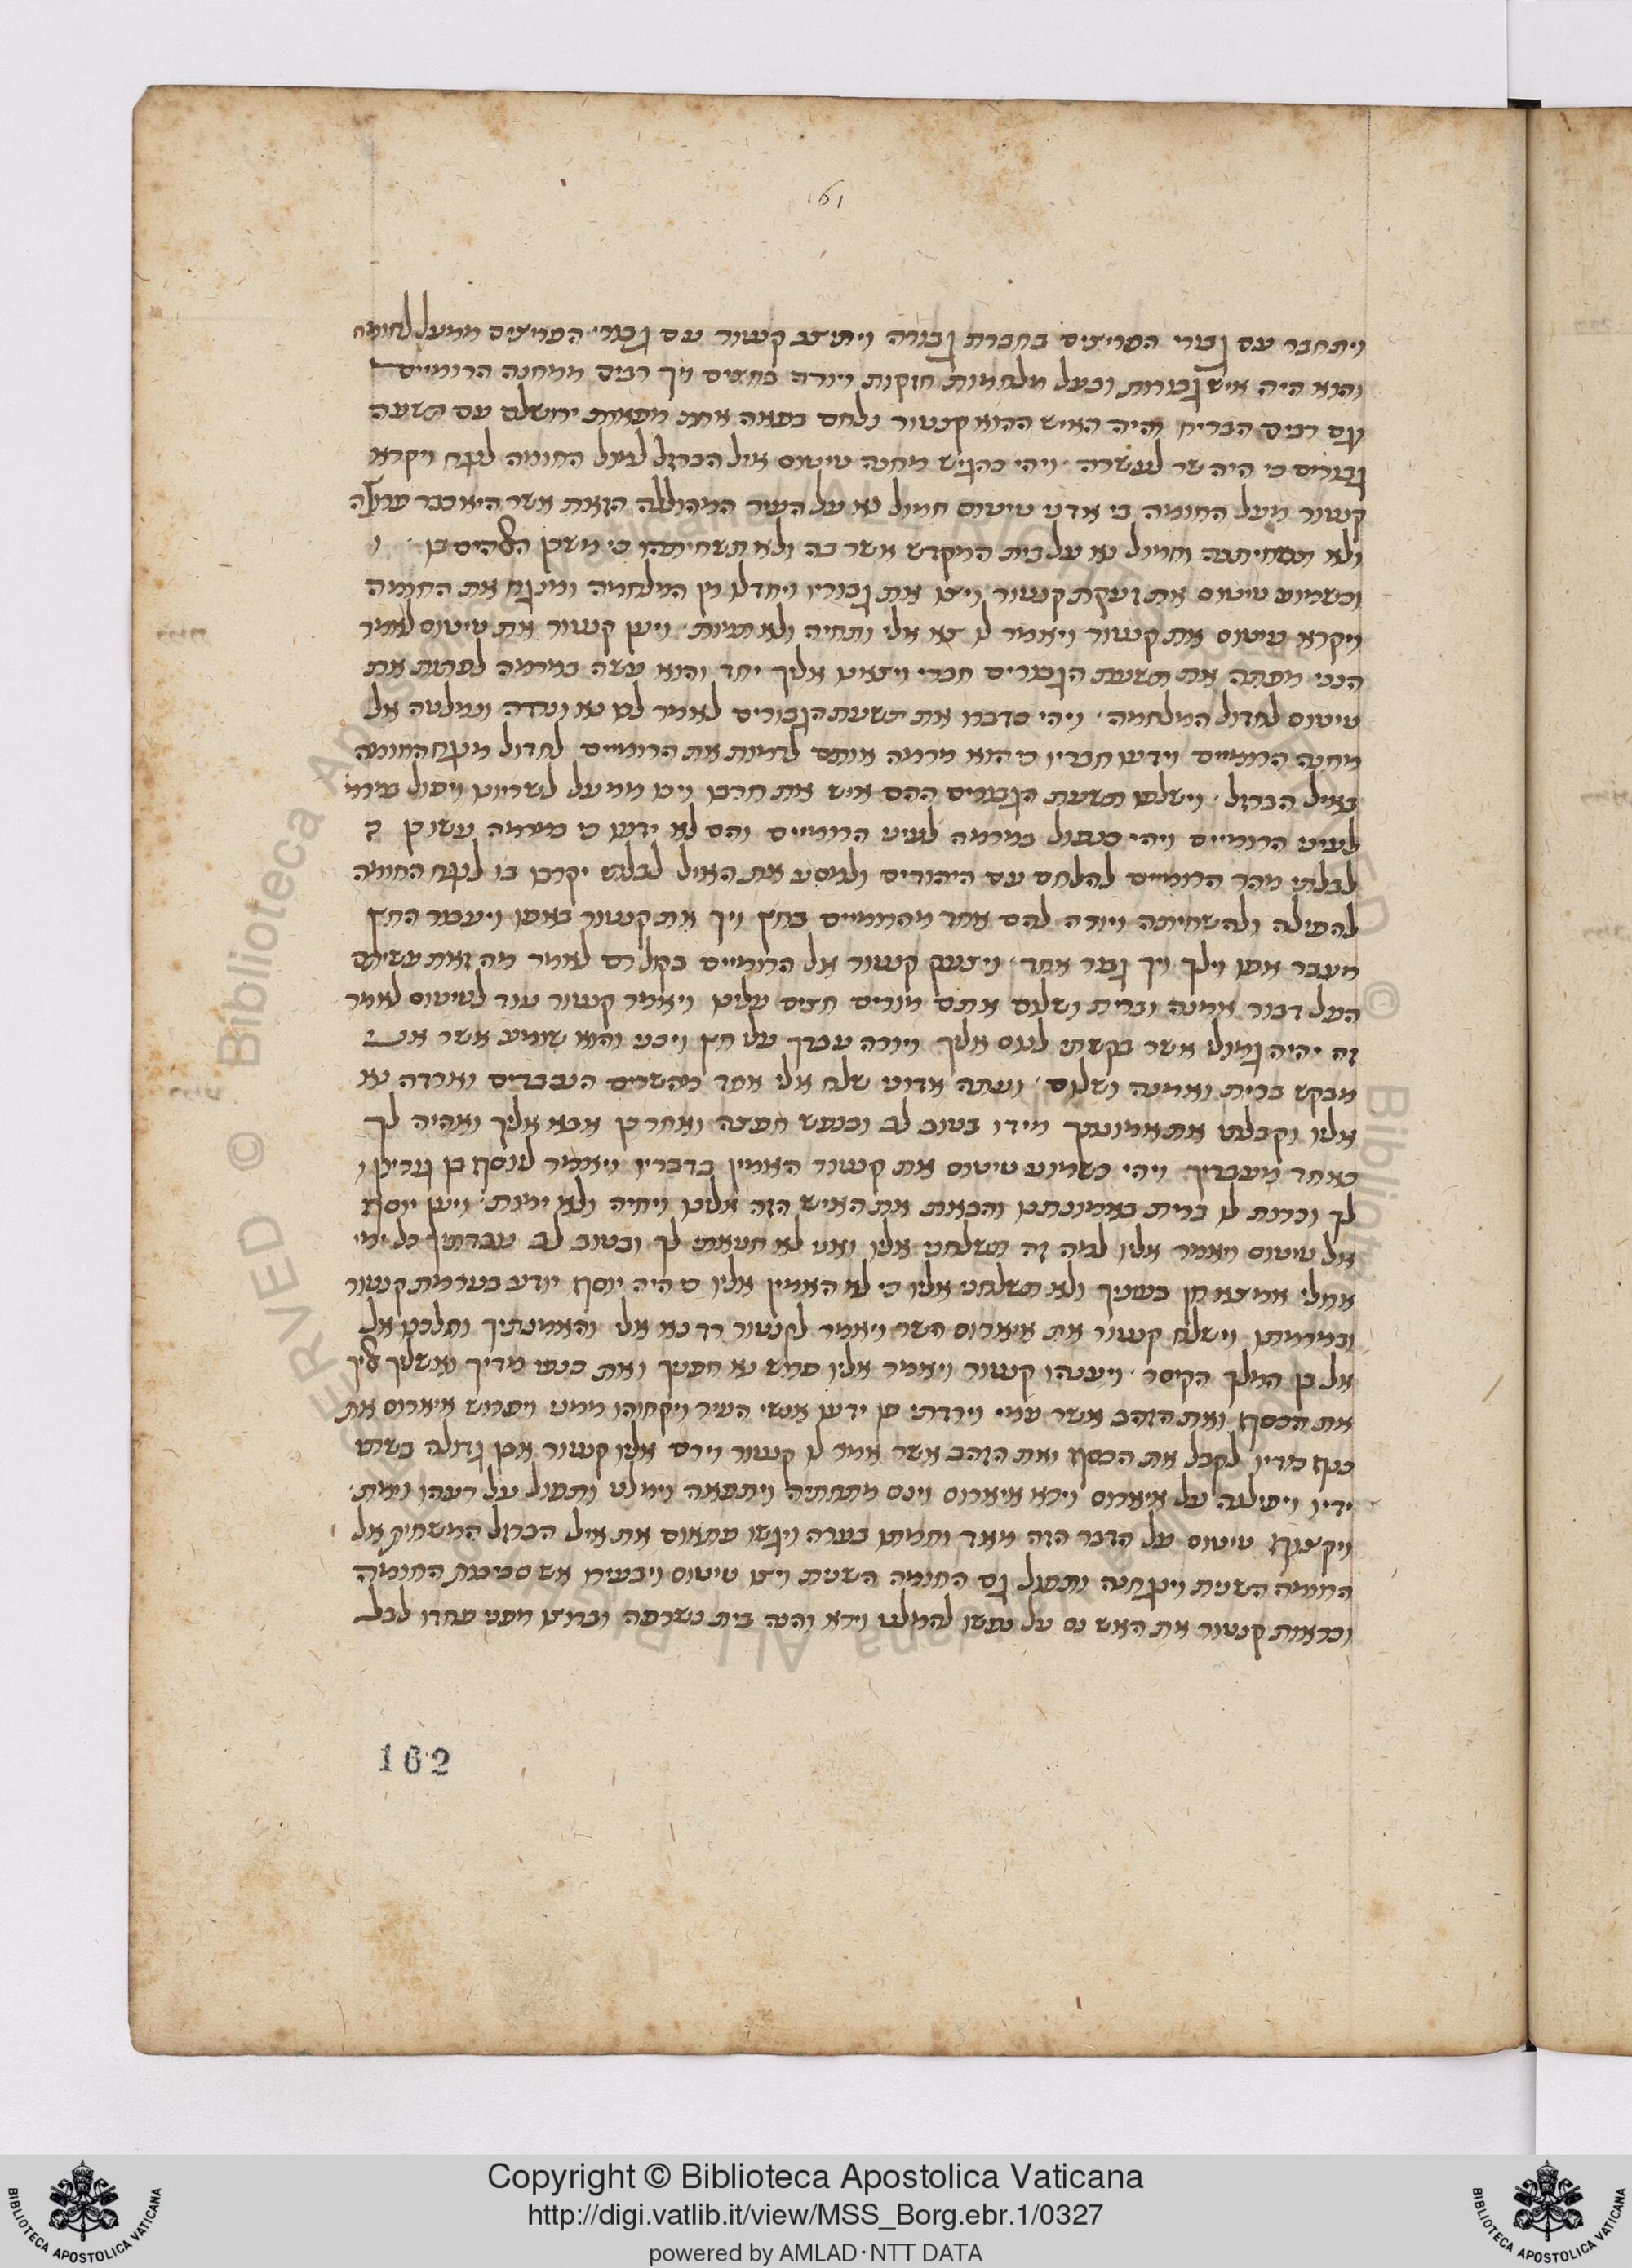 161
ויתחבר עם גבורי הפריצים בחברת גבורה ויתיצב קנטור עם גבורי הפריצים ממעל לחומה
והוא היה איש גבורות ובעל מלחמות חזקות ויורה בחצים ויך רבים ממחנה הרומיים
וגם רבים הבריח והיה האיש ההוא קנטור נלחם בפאה אחת מפאות ירושלם עם תשעה
גבורים כי היה שר לעשרה ויהי כהגיש מחנה טיטוס איל הברזל לעול החומה לנגח ויקרא
קנטור מעל החומה בי אדני טיטוס חמול נא על העיר המהוללה הזאת אשר היא כבר
ולא תשחיתנה וחמול נא על בית המקדש אשר בה ולא תשחיתהו כי משכן האלהים
וכשמוע טיטוס את זעקת קנטור ויצו את גבוריו ויחדלו מן המלחמה ומנגח את החומה
ויקרא טיטוס את קנטור ויאמר לו צא אלי ותחיה ולא תמות ויען קנטור את טיטוס לאמר
הנני מפתה את תשעת הגבורים חברי ויצאו אליך יחד והוא עשה במרמה לפתות את
טיטוס לחדול המלחמה ויהי בדברו את תשעת הגבורים לאמר לכו נא ונרדה ונמלטה אל
מחנה הרומיים וידעו חבריו כי הוא מרמה אותם לרמות את הרומיים לחדול מנגח החומה
באיל הברזל וישלפו תשעת הגבורים ההם איש את חרבו ויכו ממעל לשריונו ויפול
לעיני הרומיים ויהי כנפול במרמה לעיני הרומיים והם לא ידעו כי מרמה עשו כן
לבלתי מהר הרומיים להלחם עם היהודים ולהסיע את האיל לבלתי יקרבו בו לנגח החומה
להפילה ולהשחיתה ויורה להם אחד מהרומיים בחץ ויך את קנטור באפו ויעבר החץ
מעבר אפו וילך ויך גבור אחר ויצעק קנטור אל הרומיים בקול רם לאמר מה זאת עשיתם
העל דבור אמנה וברית ושלום אתם מורים חצים עלינו ויאמר קנטור עוד לטיטוס לאמר
זה יהיה גמולי אשר בקשתי לנוס אליך ויורה עבדך עלי חץ ויכני והוא שומע אשר אני
מבקש ברית ואמנה ושלום ועתה אדוני שלח אלי אחד מהשרים הנכבדים וארדה נא
אליו וקבלתי את אמונתך מידו בטוב לב ובנפש חפצה ואחר כן אבא אליך ואהיה לך
כאחד מעבדיך ויהי כשמוע טיטוס את קנטור האמין בדבריו ויאמר ליוסף בן גוריון
לך וכרות לו ברית באמונתנו והבאת את האיש הזה אלינו ויחיה ולא ימות ויען יוסף
אל טיטוס ויאמר אליו למה זה תשלחני אליו ואני לא חטאתי לך ובטוב לב עבדתיך כל ימי
אולי אמצא חן בעיניך ולא תשלחני אליו כי לא האמין אליו כי היה יוסף יודע בערמת קנטור
ובמרמתו וישלח קנטור את איארוס השר ויאמר לקנטור רד נא אלי והאמנתיך ותלכנו אל
אל בן המלך הקיסר ויענהו קנטור ויאמר אליו פרוש נא חפנך ואת כנפי מדיך ואשליך אליך
את הכסף ואת הזהב אשר עמי וירדתי פן ידעו אנשי העיר ויקחוהו ממני ויפרוש איארוס את
כנף מדיו לקבל את הכסף ואת הזהב אשר אמר לו קנטור וירם אליו קנטור אבן גדולה בשתי
ידיו ויפילנה על איארוס וירא איארוס וינס מתחתיה ויתפאה וימלט ותפול על רעהו וימת
ויקצוף טיטוס על הדבר הזה מאד וחמתו בערה ויגשו פתאום את איל הברזל המשחית אל
החומה השנית ויגחנה ותפול גם החומה השנית ויצו טיטוס ויבעירו אש סביבות החומה
וכראות קנטור את האש נס על נפשו להמלט וירא והנה בית נשרפה וברוצו מפני פחדו לבל
162
Copyright © Biblioteca Apostolica Vaticana
http://digi.vatlib.it/view/MSS_Borg.ebr.1/0327
powered by AMLAD·NTT DATA